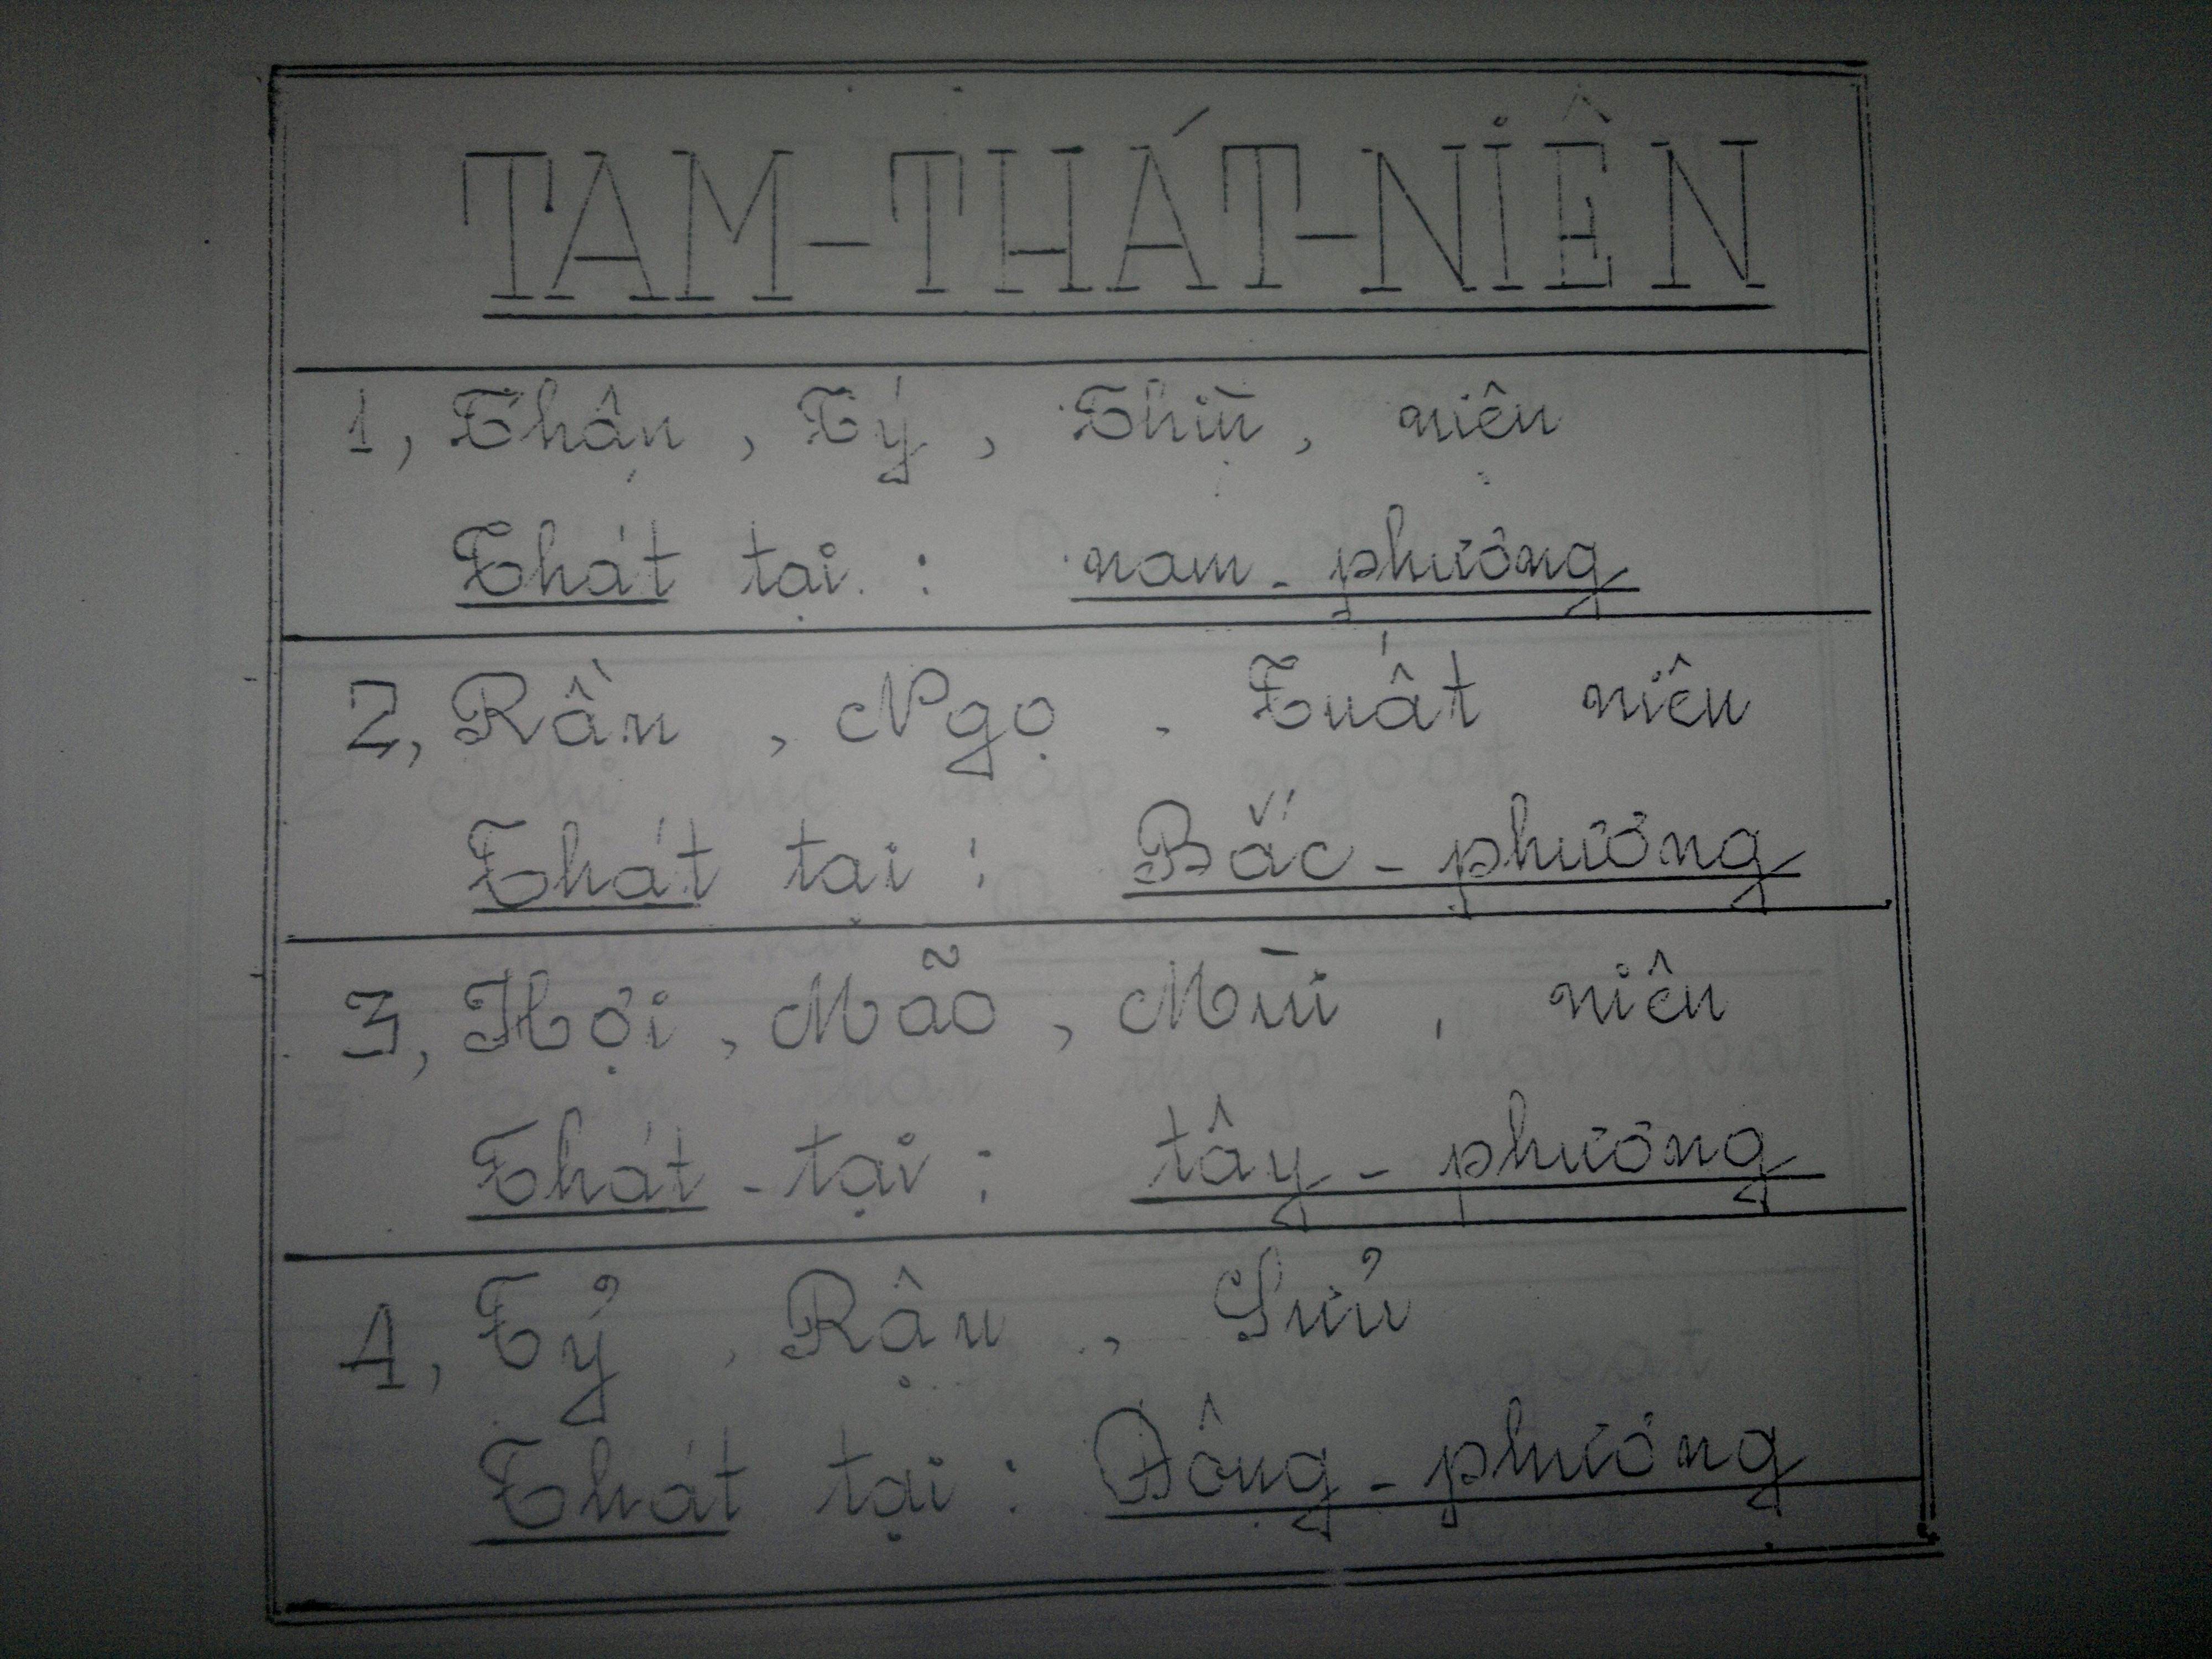 TAM-THÁT-NIÊN
1, Thân, Tý, Thìn, niên
Thát tại : nam - phương
2, Rần, Ngọ, Tuất niên
Thát tại : Bắc - phương
3, Hợi, Mão, Mùi, niên
Thát - tại : tây - phương
4, Tỷ, Rậu, Sửu
Thát tại : Đông - phương